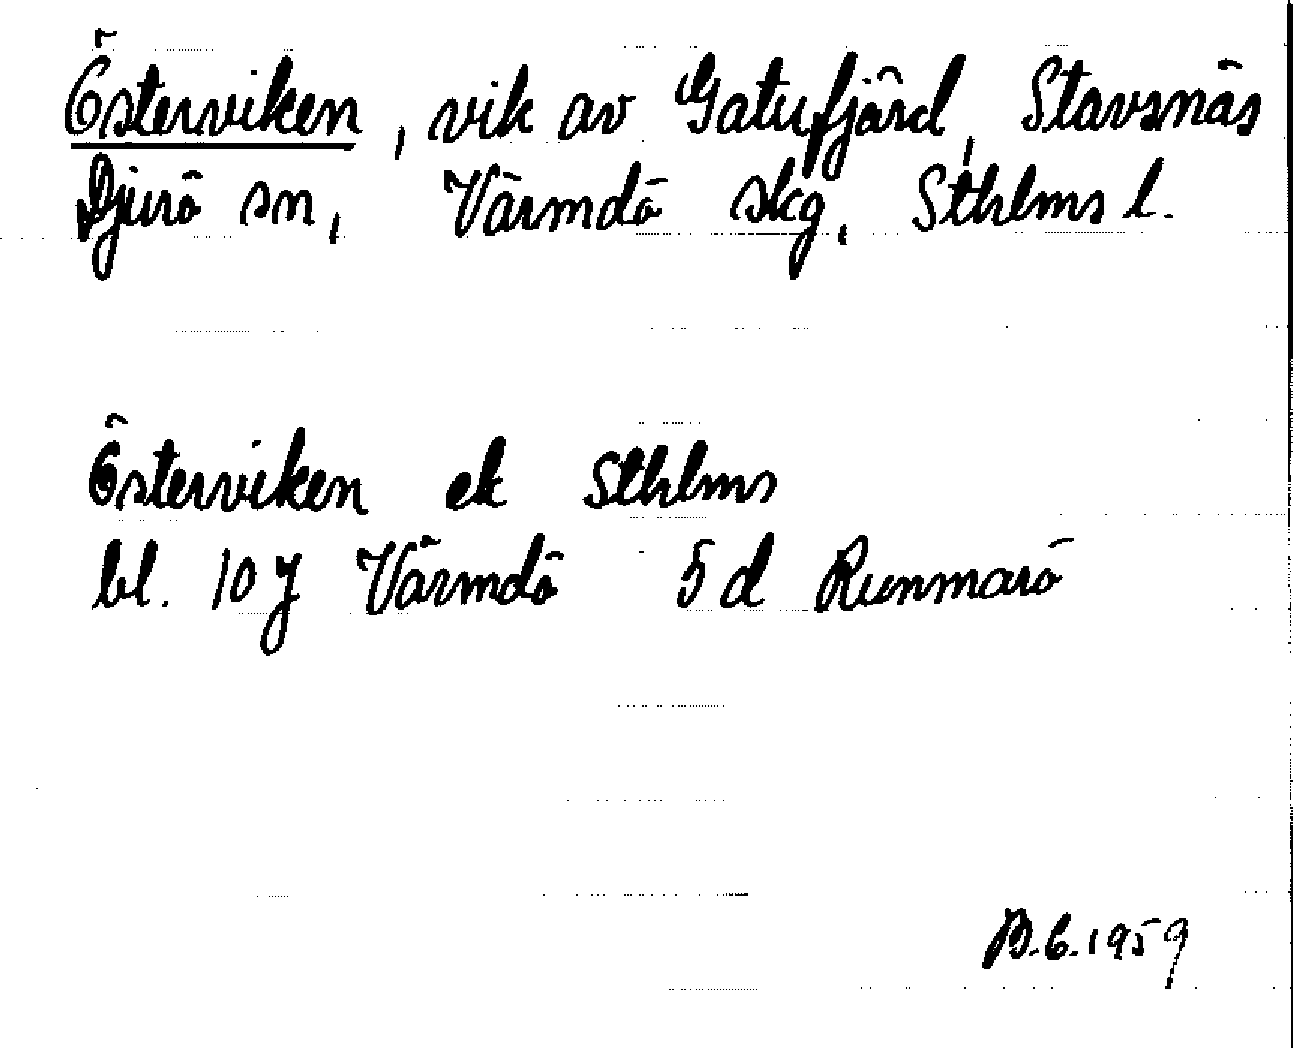 Österviken, vik av Gatufjärd, Stavsnäs
Djurö sn, Värmdö skg, Sthlms l.
Österviken ek Sthlms
bl. 10 y Värmdö 5 d Runmarö
B.G. 1959